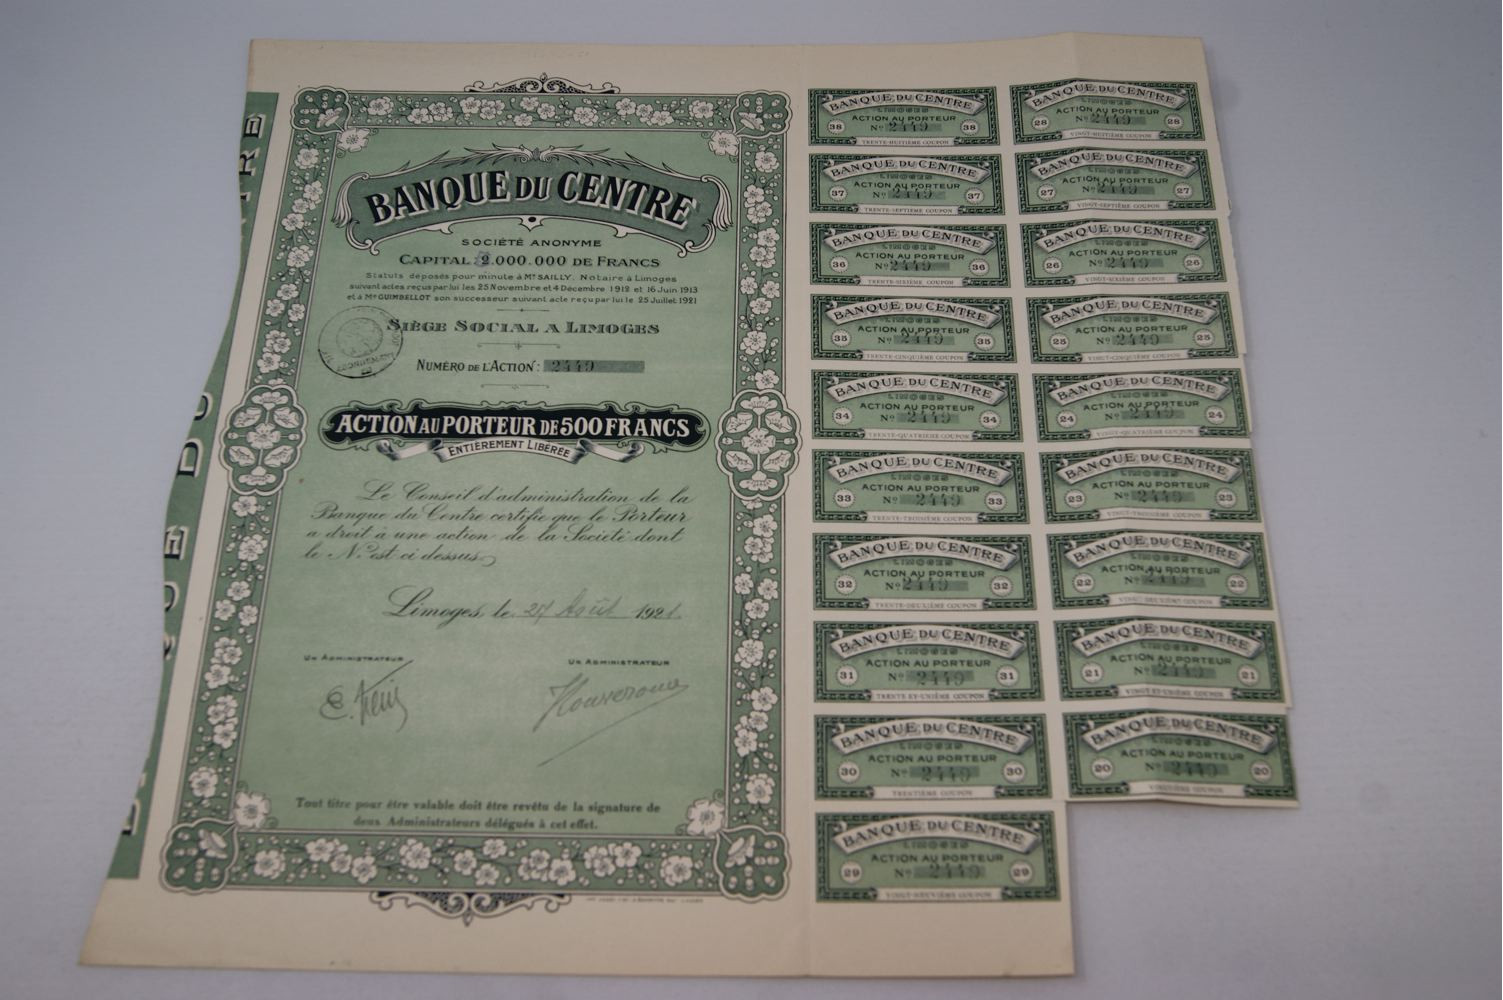 BANQUE DU CENTRE
SOCIÉTÉ ANONYME
CAPITAL 2.000.000 DE FRANCS
Statuts déposés pour minute à Me SAILLY, Notaire à Limoges
suivant actes reçus par lui les 25 Novembre et 4 Décembre 1912 et 16 Juin 1913
et à Me GUIMBELLOT son successeur suivant acte reçu par lui le 25 Juillet 1921
SIÈGE SOCIAL A LIMOGES
NUMÉRO DE L'ACTION : 2449
ACTION AU PORTEUR DE 500 FRANCS
ENTIÈREMENT LIBÉRÉE
Le Conseil d'administration de la
Banque du Centre certifie que le Porteur
a droit à une action de la Société dont
le No est ci dessus
Limoges, le 27 Août 1921
UN ADMINISTRATEUR
UN ADMINISTRATEUR
Tout titre pour être valable doit être revêtu de la signature de
deux Administrateurs délégués à cet effet.
BANQUE DU CENTRE
LIMOGES
ACTION AU PORTEUR
38 No 2449 38
TRENTE-HUITIÈME COUPON
BANQUE DU CENTRE
LIMOGES
ACTION AU PORTEUR
28 No 2449 28
VINGT-HUITIÈME COUPON
BANQUE DU CENTRE
LIMOGES
ACTION AU PORTEUR
37 No 2449 37
TRENTE-SEPTIÈME COUPON
BANQUE DU CENTRE
LIMOGES
ACTION AU PORTEUR
27 No 2449 27
VINGT-SEPTIÈME COUPON
BANQUE DU CENTRE
LIMOGES
ACTION AU PORTEUR
36 No 2449 36
TRENTE-SIXIÈME COUPON
BANQUE DU CENTRE
LIMOGES
ACTION AU PORTEUR
26 No 2449 26
VINGT-SIXIÈME COUPON
BANQUE DU CENTRE
LIMOGES
ACTION AU PORTEUR
35 No 2449 35
TRENTE-CINQUIÈME COUPON
BANQUE DU CENTRE
LIMOGES
ACTION AU PORTEUR
25 No 2449 25
VINGT-CINQUIÈME COUPON
BANQUE DU CENTRE
LIMOGES
ACTION AU PORTEUR
34 No 2449 34
TRENTE-QUATRIÈME COUPON
BANQUE DU CENTRE
LIMOGES
ACTION AU PORTEUR
24 No 2449 24
VINGT-QUATRIÈME COUPON
BANQUE DU CENTRE
LIMOGES
ACTION AU PORTEUR
33 No 2449 33
TRENTE-TROISIÈME COUPON
BANQUE DU CENTRE
LIMOGES
ACTION AU PORTEUR
23 No 2449 23
VINGT-TROISIÈME COUPON
BANQUE DU CENTRE
LIMOGES
ACTION AU PORTEUR
32 No 2449 32
TRENTE-DEUXIÈME COUPON
BANQUE DU CENTRE
LIMOGES
ACTION AU PORTEUR
22 No 2449 22
VINGT-DEUXIÈME COUPON
BANQUE DU CENTRE
LIMOGES
ACTION AU PORTEUR
31 No 2449 31
TRENTE ET-UNIÈME COUPON
BANQUE DU CENTRE
LIMOGES
ACTION AU PORTEUR
21 No 2449 21
VINGT ET-UNIÈME COUPON
BANQUE DU CENTRE
LIMOGES
ACTION AU PORTEUR
30 No 2449 30
TRENTIÈME COUPON
BANQUE DU CENTRE
LIMOGES
ACTION AU PORTEUR
20 No 2449 20
VINGTIÈME COUPON
BANQUE DU CENTRE
LIMOGES
ACTION AU PORTEUR
29 No 2449 29
VINGT-NEUVIÈME COUPON